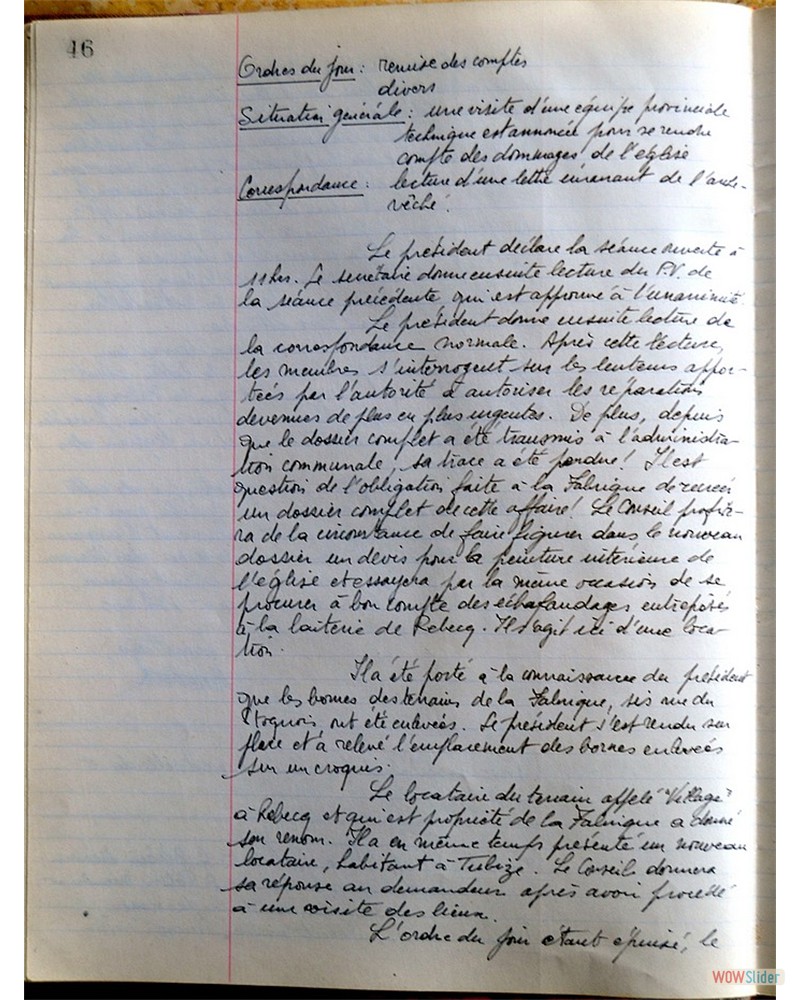 46
Ordres du jour : remise des comptes
divers
Situation générale : une visite d'une équipe provinciale
technique est annoncée pour se rendre
compte des dommages de l'église
Correspondance : lecture d'une lettre émanant de l'arche-
vêché.
Le président déclare la séance ouverte à
11 hrs. Le secrétaire donne ensuite lecture du P.V. de
la séance précédente qui est approuvé à l'unanimité.
Le président donne ensuite lecture de
la correspondance normale. Après cette lecture,
les membres s'interrogent sur les lenteurs appor-
tées par l'autorité à autoriser les réparations
devenues de plus en plus urgentes. De plus, depuis
que le dossier complet a été transmis à l'administra-
tion communale, sa trace a été perdue! Il est
question de l'obligation faite à la Fabrique de
un dossier complet de cette affaire! Le Conseil profite-
ra de la circonstance de faire figurer dans le nouveau
dossier un devis pour la peinture intérieure de
l'église et essayera par la même occasion de se
procurer à bon compte des échafaudages entreposés
à la laiterie de Rebecq. Il s'agit ici d'une loca-
tion.
Il a été porté à la connaissance du président
que les bornes des terrains de la Fabrique, sis rue du
ont été enlevées. Le président s'est rendu sur
place et a relevé l'emplacement des bornes enlevées
sur un croquis.
Le locataire du terrain appelé "Village"
à Rebecq et qui est propriété de la Fabrique a donné
son renom. Il a en même temps présenté un nouveau
locataire, habitant à Tubize. Le Conseil donnera
sa réponse au demandeur après avoir procédé
à une visite des lieux.
L'ordre du jour étant épuisé, le
WOWSlider